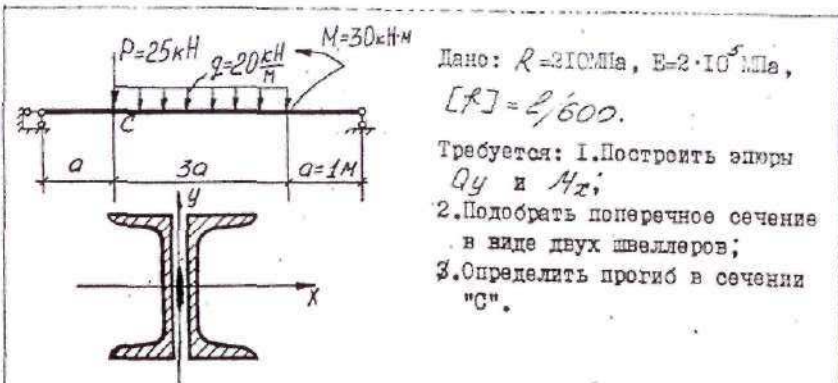 P=25кН
q=20 кН/м
M=30кН·м
C
a
3a
a=1м
y
x
Дано: R=210МПа, E=2·10⁵МПа,
[f]=ℓ/600.
Требуется: 1.Построить эпюры
Qy и Mx;
2.Подобрать поперечное сечение
в виде двух швеллеров;
3.Определить прогиб в сечении
"С".